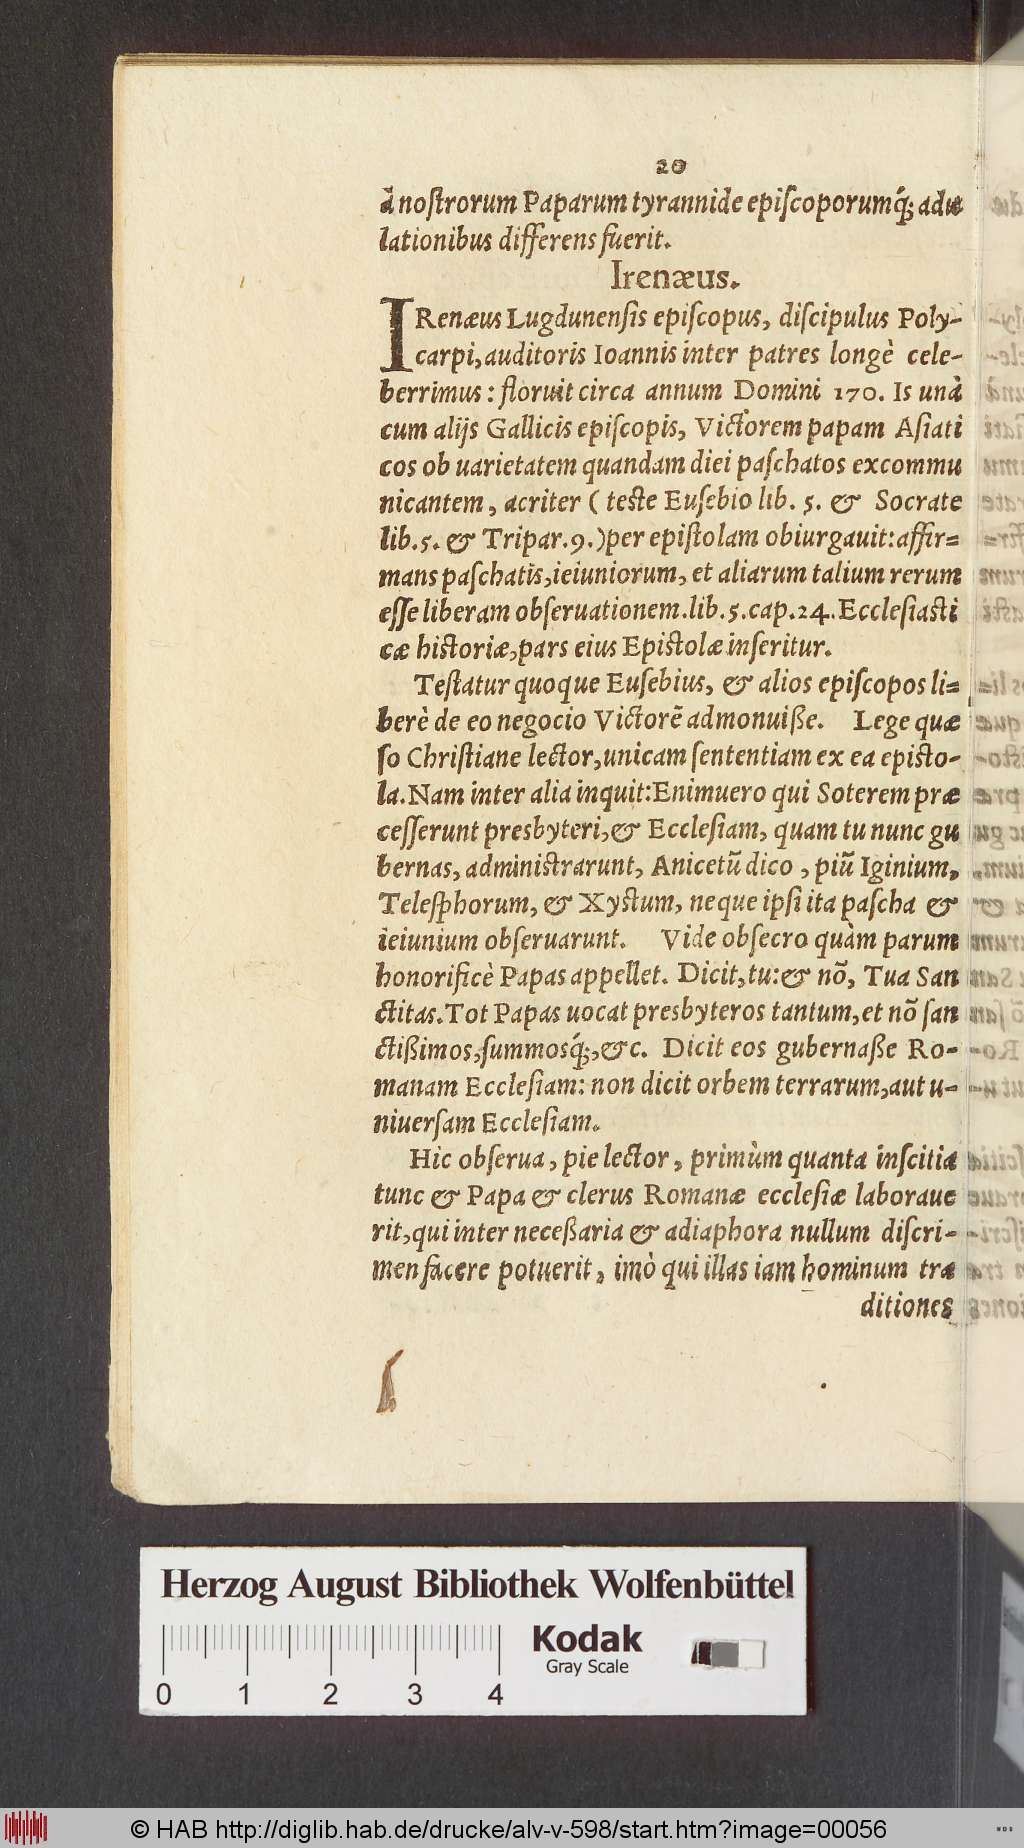 20
à noſtrorum Paparum tyrannide epiſcoporumq́; adu
lationibus differens fuerit.
Irenæus.
IRenæus Lugdunenſis epiſcopus, diſcipulus Poly-
carpi, auditoris Ioannis inter patres longè cele-
berrimus: floruit circa annum Domini 170. Is unà
cum alijs Gallicis epiſcopis, Victorem papam Aſiati
cos ob uarietatem quandam diei paſchatos excommu
nicantem, acriter (teſte Euſebio lib. 5. & Socrate
lib. 5. & Tripar. 9.) per epiſtolam obiurgauit: affir=
mans paſchatis, ieiuniorum, et aliarum talium rerum
eſſe liberam obſeruationem. lib. 5. cap. 24. Eccleſiaſti
cæ hiſtoriæ, pars eius Epiſtolæ inſeritur.
Teſtatur quoque Euſebius, & alios epiſcopos li=
berè de eo negocio Victorẽ admonuiße. Lege quæ
ſo Chriſtiane lector, unicam ſententiam ex ea epiſto-
la. Nam inter alia inquit: Enimuero qui Soterem præ
ceſſerunt presbyteri, & Eccleſiam, quam tu nunc gu
bernas, adminiſtrarunt, Anicetũ dico, piũ Iginium,
Teleſphorum, & Xyſtum, neque ipſi ita paſcha &
ieiunium obſeruarunt. Vide obſecro quàm parum
honorificè Papas appellet. Dicit, tu: & nõ, Tua San
ctitas. Tot Papas uocat presbyteros tantum, et nõ ſan
ctißimos, ſummosq́;, &c. Dicit eos gubernaße Ro-
manam Eccleſiam: non dicit orbem terrarum, aut u-
niuerſam Eccleſiam.
Hic obſerua, pie lector, primùm quanta inſcitia
tunc & Papa & clerus Romanæ eccleſiæ laboraue
rit, qui inter neceßaria & adiaphora nullum diſcri-
men facere potuerit, imò qui illas iam hominum tra
ditiones
Herzog August Bibliothek Wolfenbüttel
Kodak
Gray Scale
0 1 2 3 4
© HAB http://diglib.hab.de/drucke/alv-v-598/start.htm?image=00056